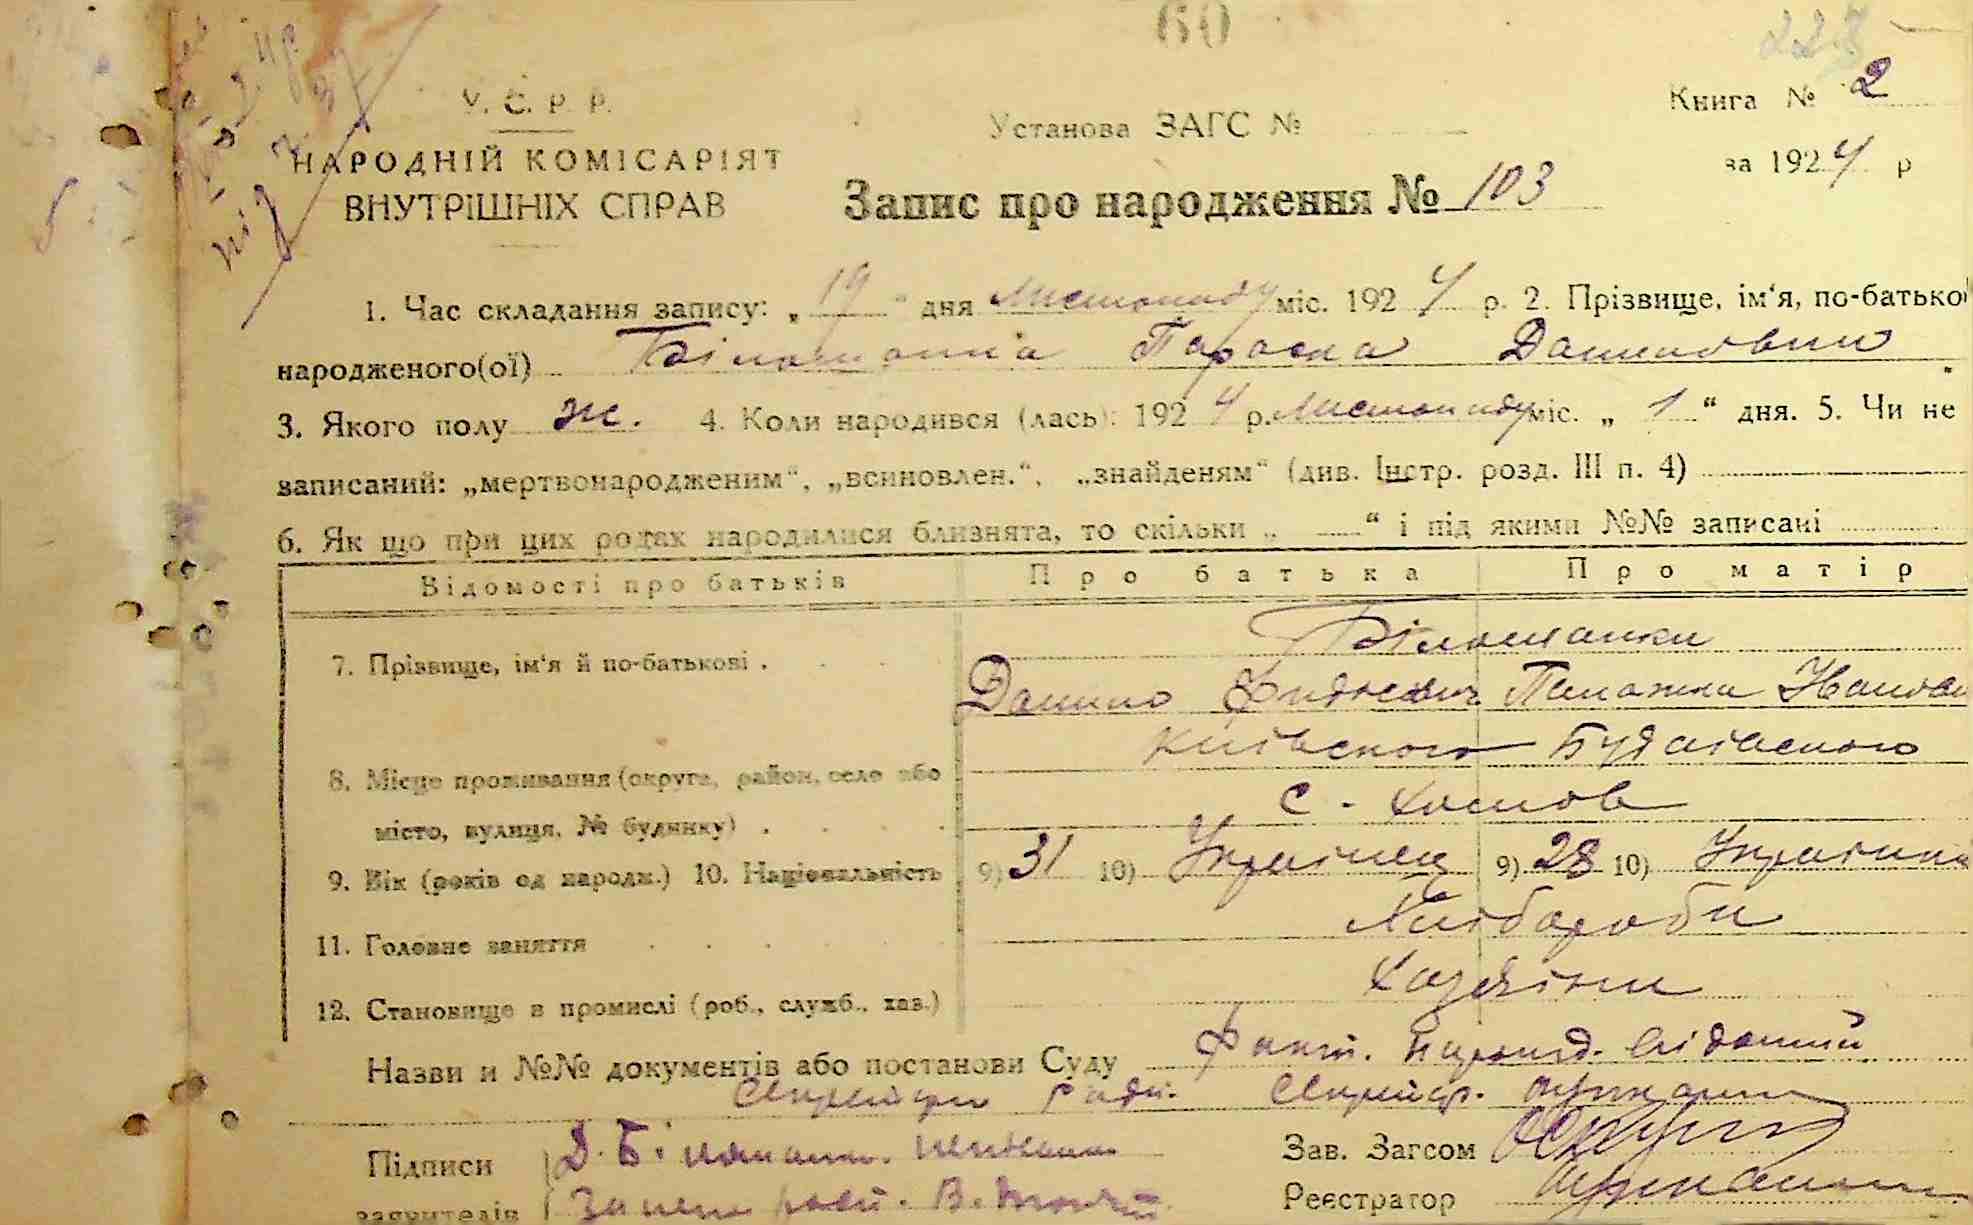 60
У. С. Р. Р.
НАРОДНІЙ КОМІСАРІЯТ
ВНУТРІШНІХ СПРАВ
Установа ЗАГС №
Книга № 2
за 1924 р
Запис про народження № 103
1. Час складання запису: „19“ дня Листопаду міс. 1924 р. 2. Прізвище, ім‘я, по-батько
народженого(ої) Параска Даниловни
3. Якого полу ж. 4. Коли народився (лась): 1924 р. Листопаду міс. „1“ дня. 5. Чи не
записаний: „мертвонародженим“, „всиновлен.“, „знайденям“ (див. Інстр. розд. III п. 4)
6. Як що при цих родах народилися близнята, то скільки „—“ і під якими №№ записані
Відомості про батьків Про батька Про матір
7. Прізвище, ім‘я й по-батькові .
Данило Палажка Іванов
Київского Будаївского
8. Місце проживання (округа, район, село або
с.
місто, вулиця, № будинку) .
9. Вік (років од народж.) 10. Національність 9) 31 10) Українец 9) 28 10) Українка
11. Головне заняття Хлібороби
12. Становище в промислі (роб., служб., хаз.) Хазяїни
Назви и №№ документів або постанови Суду
Підписи Д.
Зав. Загсом
заявителів
Реєстратор